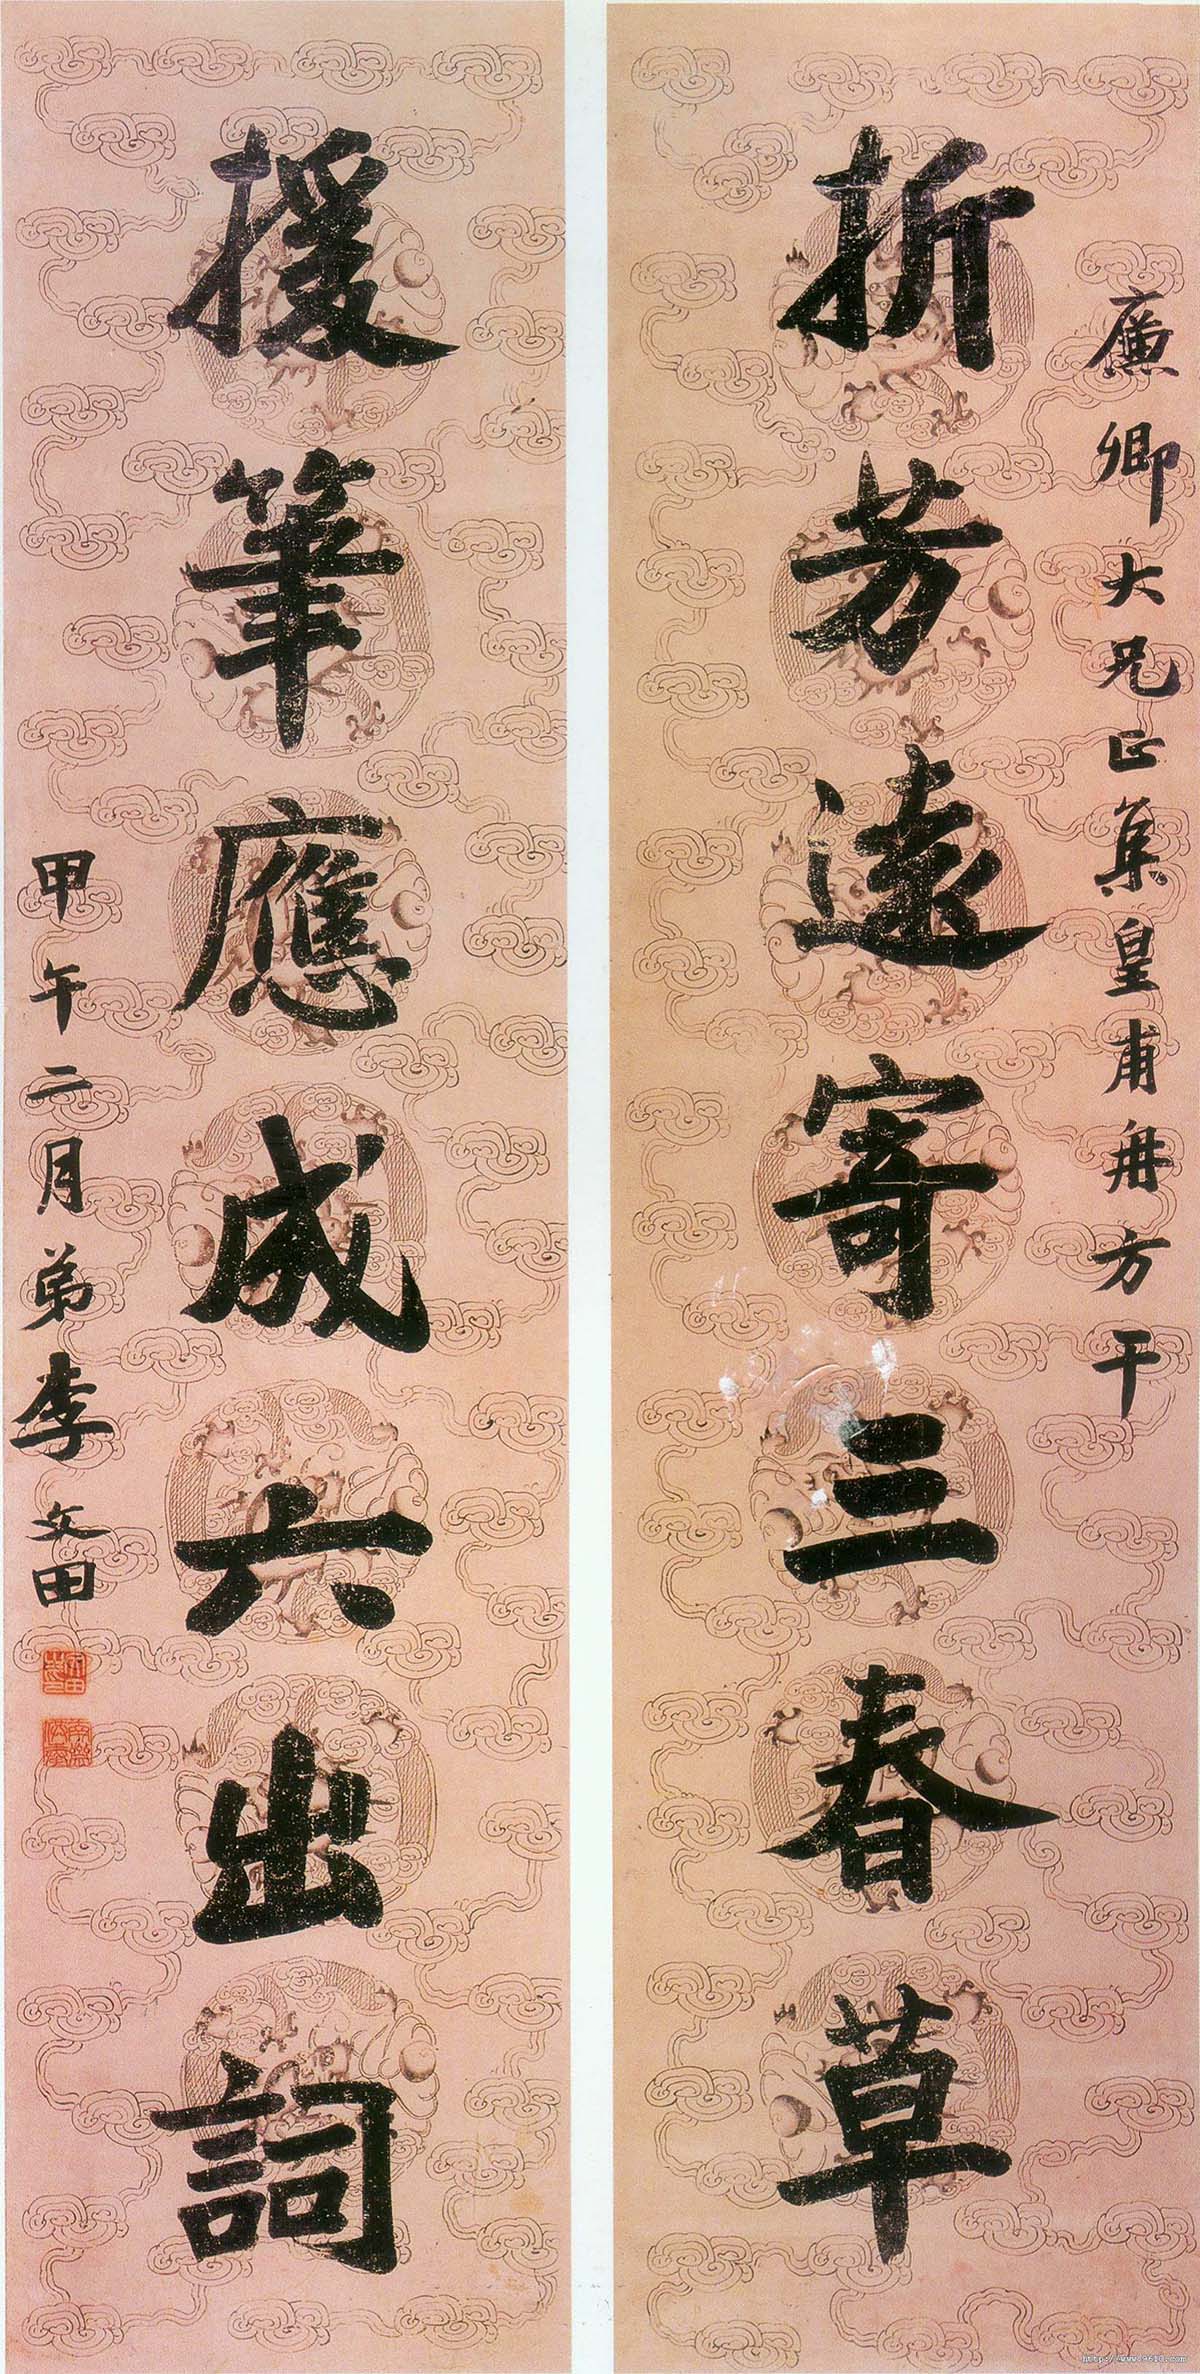 廉卿大兄正集皇甫冉方干
折芳遠寄三春草
援筆應成六出詞
甲午二月弟李文田
http://www.09610.com